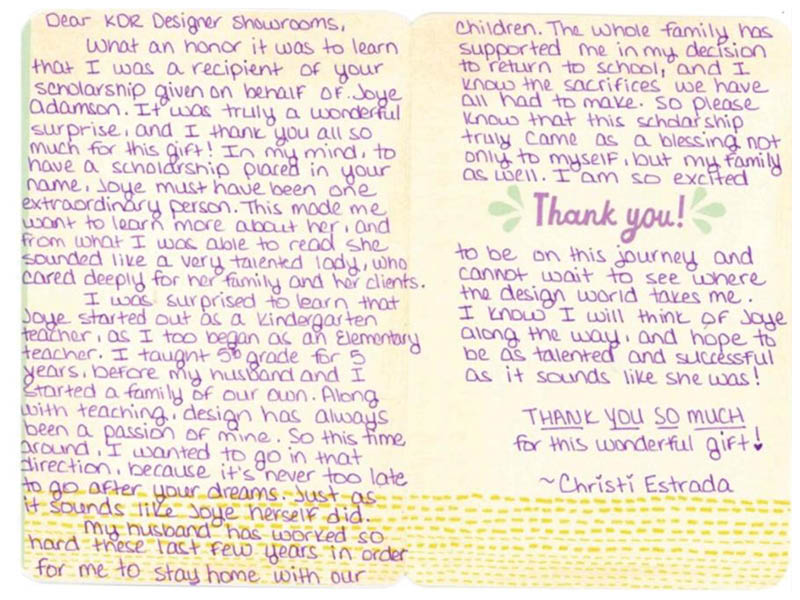 Dear KDR Designer Showrooms,
What an honor it was to learn
that I was a recipient of your
scholarship given on behalf of Joye
Adamson. It was truly a wonderful
surprise, and I thank you all so
much for this gift! In my mind, to
have a scholarship placed in your
name, Joye must have been one
extraordinary person. This made me
want to learn more about her, and
from what I was able to read she
sounded like a very talented lady, who
cared deeply for her family and her clients.
I was surprised to learn that
Joye started out as a Kindergarten
teacher, as I too began as an Elementary
teacher. I taught 5th grade for 5
years, before my husband and I
started a family of our own. Along
with teaching, design has always
been a passion of mine. So this time
around, I wanted to go in that
direction, because it's never too late
to go after your dreams. Just as
it sounds like Joye herself did.
My husband has worked so
hard these last few years in order
for me to stay home with our
children. The whole family has
supported me in my decision
to return to school, and I
know the sacrifices we have
all had to make. So please
know that this scholarship
truly came as a blessing not
only to myself, but my family
as well. I am so excited
Thank you!
to be on this journey and
cannot wait to see where
the design world takes me.
I know I will think of Joye
along the way, and hope to
be as talented and successful
as it sounds like she was!
THANK YOU SO MUCH
for this wonderful gift!
~Christi Estrada